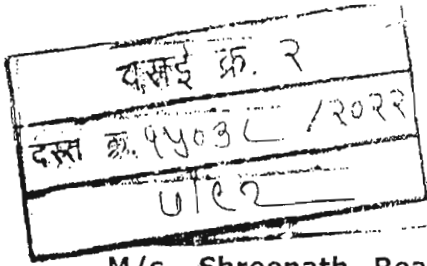 वसई क्र. २
दस्त क्र. १५०३८ /२०२२
७/९२
M/s. Shreenath Rea